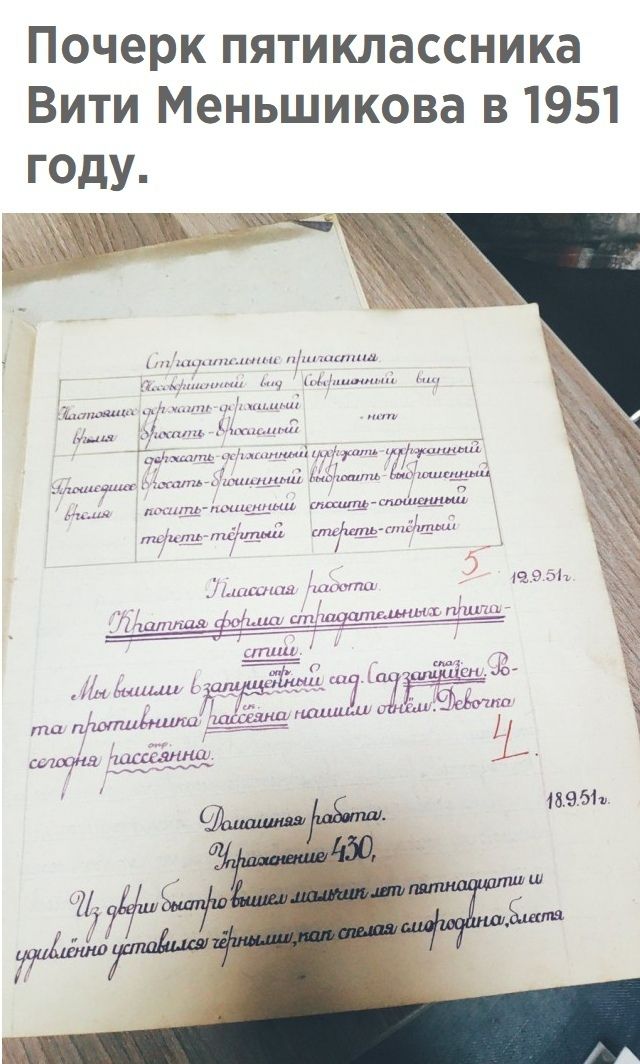 Почерк пятиклассника
Вити Меньшикова в 1951
году.
Страдательные причастия
Несовершенный вид Совершенный вид
Настоящее время
держать-держимый
бросать-бросаемый
нет
Прошедшее время
держать-держанный удержать-удержанный
бросать-брошенный выбросить-выброшенный
косить-кошенный скосить-скошенный
тереть-тёртый стереть-стёртый
5
12.9.51г.
Классная работа.
Краткая форма страдательных прича-
стий.
опр. сказ.
Мы вышли в запущенный сад. Сад запущен. Ро-
та противника рассеяна нашим огнём. Девочка
ск.
сегодня рассеянна.
опр.
4
18.9.51г.
Домашняя работа.
Упражнение 430,
Из двери быстро вышел мальчик лет пятнадцати и
удивлённо уставился чёрными, как спелая смородина, блестя